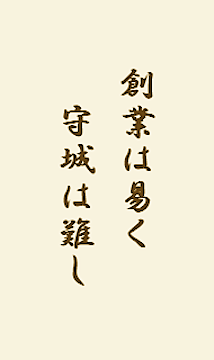 創業は易く
守城は難し